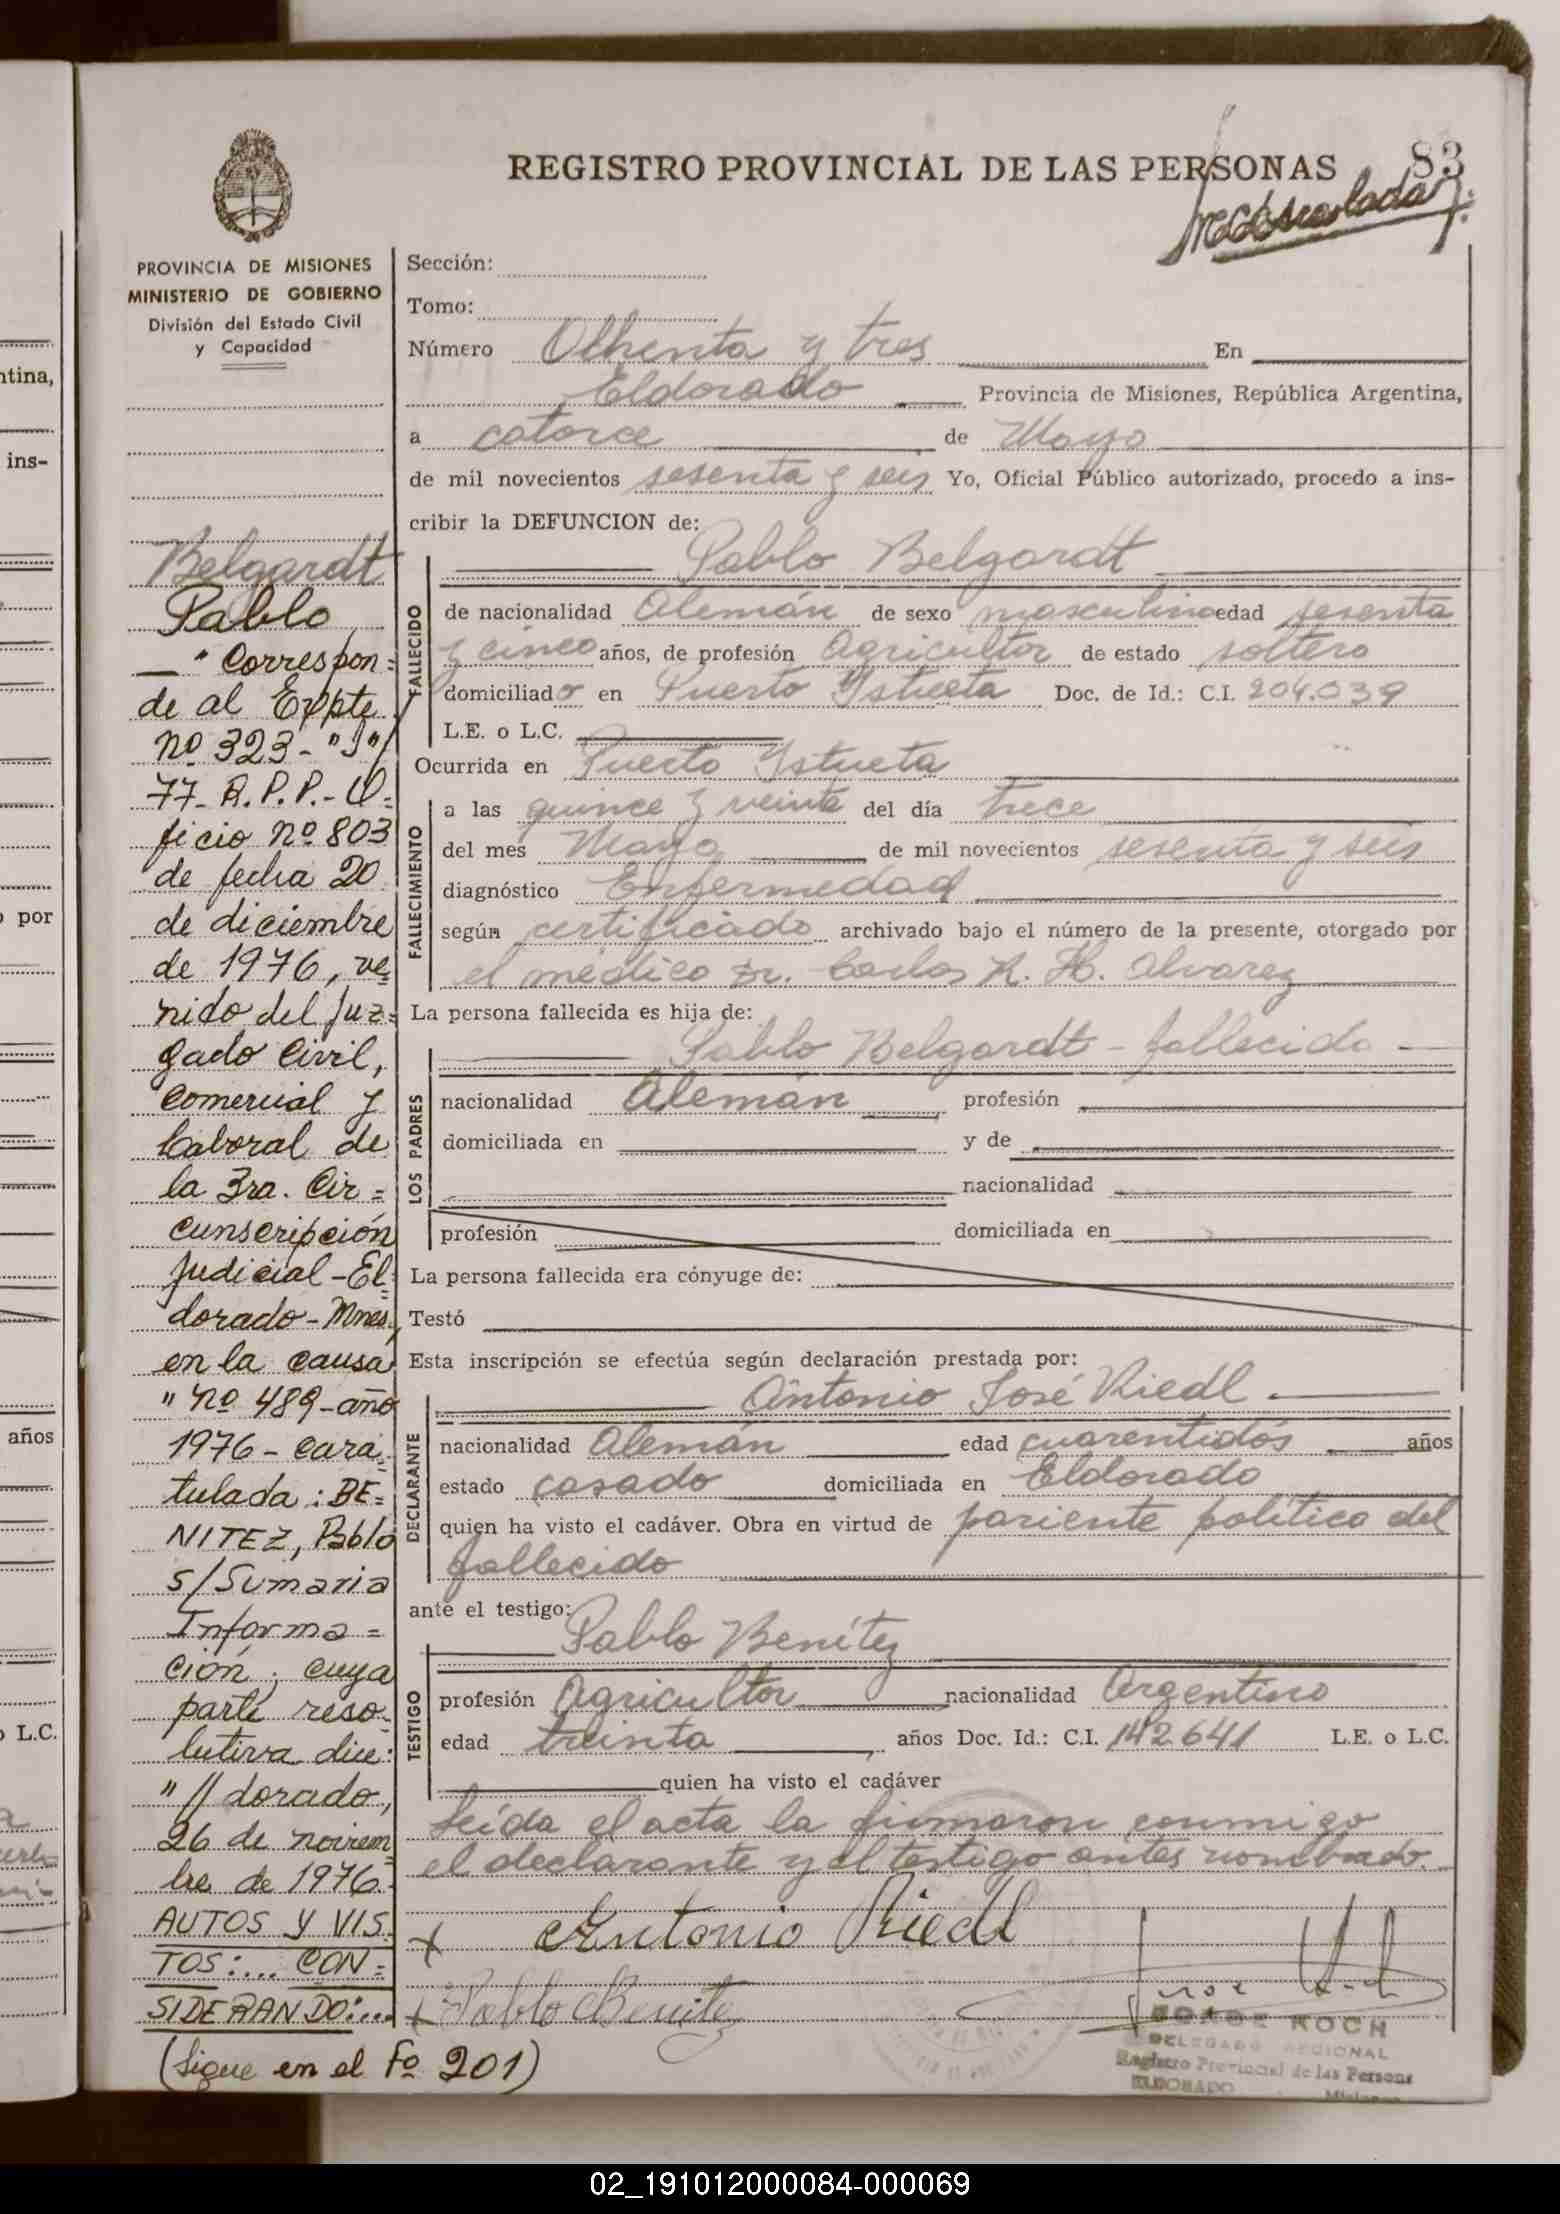 REGISTRO PROVINCIAL DE LAS PERSONAS
83
PROVINCIA DE MISIONES
MINISTERIO DE GOBIERNO
División del Estado Civil
y Capacidad
Belgardt
Pablo
— " Correspon=
de al Expte.
nº 323 - "J"/
77 - R.P.P.- O=
ficio nº 803
de fecha 20
de diciembre
de 1976, ve=
nido del Juz=
gado Civil,
Comercial y
Laboral de
la 3ra. Cir=
cunscripción
Judicial - El=
dorado - Mnes.,
en la causa
" nº 489 - año
1976 - cara=
tulada: BE=
NITEZ, Pablo
s/Sumaria
Informa=
ción; cuya
parte reso=
lutiva dice:
" // dorado,
26 de noviem=
bre de 1976.-
AUTOS Y VIS=
TOS:... CON=
SIDERANDO:...
(Sigue en el Fº 201)
Sección:
Tomo:
Número Othenta y tres En
Eldorado Provincia de Misiones, República Argentina,
a catorce de Mayo
de mil novecientos sesenta y seis Yo, Oficial Público autorizado, procedo a ins-
cribir la DEFUNCION de:
Pablo Belgardt
FALLECIDO
de nacionalidad Alemán de sexo masculino edad sesenta
y cinco años, de profesión Agricultor de estado soltero
domiciliado en Puerto Istueta Doc. de Id.: C.I. 204.039
L.E. o L.C.
Ocurrida en Puerto Istueta
FALLECIMIENTO
a las quince y veinte del día trece
del mes Mayo de mil novecientos sesenta y seis
diagnóstico Enfermedad
según certificado archivado bajo el número de la presente, otorgado por
el médico Dr. Carlos R. H. Alvarez
La persona fallecida es hija de:
Pablo Belgardt - fallecido -
LOS PADRES
nacionalidad Alemán profesión
domiciliada en y de
nacionalidad
profesión domiciliada en
La persona fallecida era cónyuge de:
Testó
Esta inscripción se efectúa según declaración prestada por:
Antonio José Riedl
DECLARANTE
nacionalidad Alemán edad cuarentidós años
estado casado domiciliada en Eldorado
quien ha visto el cadáver. Obra en virtud de pariente político del
fallecido
ante el testigo:
Pablo Benítez
TESTIGO
profesión Agricultor nacionalidad Argentino
edad treinta años Doc. Id.: C.I. 142641 L.E. o L.C.
quien ha visto el cadáver
Leída el acta la firmaron conmigo
el declarante y el testigo antes nombrado.
x Antonio Riedl
x Pablo Benitez
JORGE KOCH
DELEGADO REGIONAL
Registro Provincial de las Persons
ELDORADO Misiones
ntina,
ins-
por
años
L.C.
02_191012000084-000069